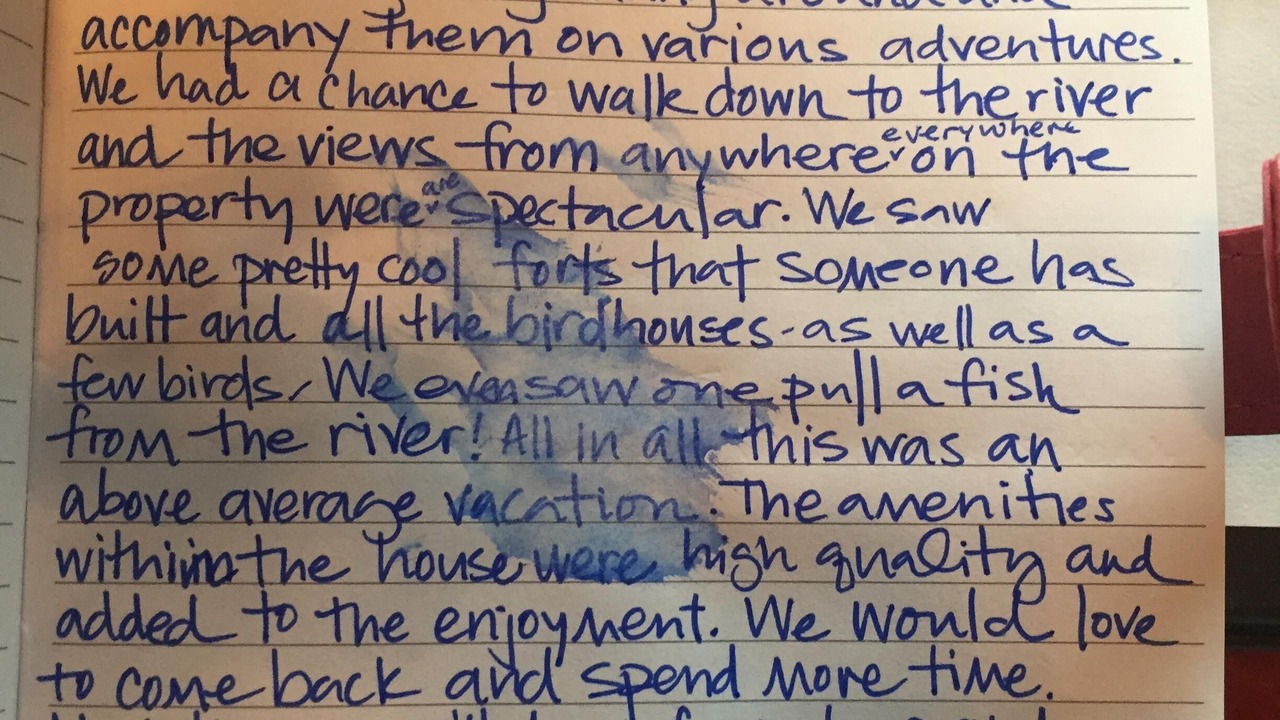 accompany them on various adventures.
We had a chance to walk down to the river
everywhere
and the views from anywhere on the
are
property were spectacular. We saw
some pretty cool forts that someone has
built and all the birdhouses - as well as a
few birds. We even saw one pull a fish
from the river! All in all this was an
above average vacation. The amenities
within the house were high quality and
added to the enjoyment. We would love
to come back and spend more time.